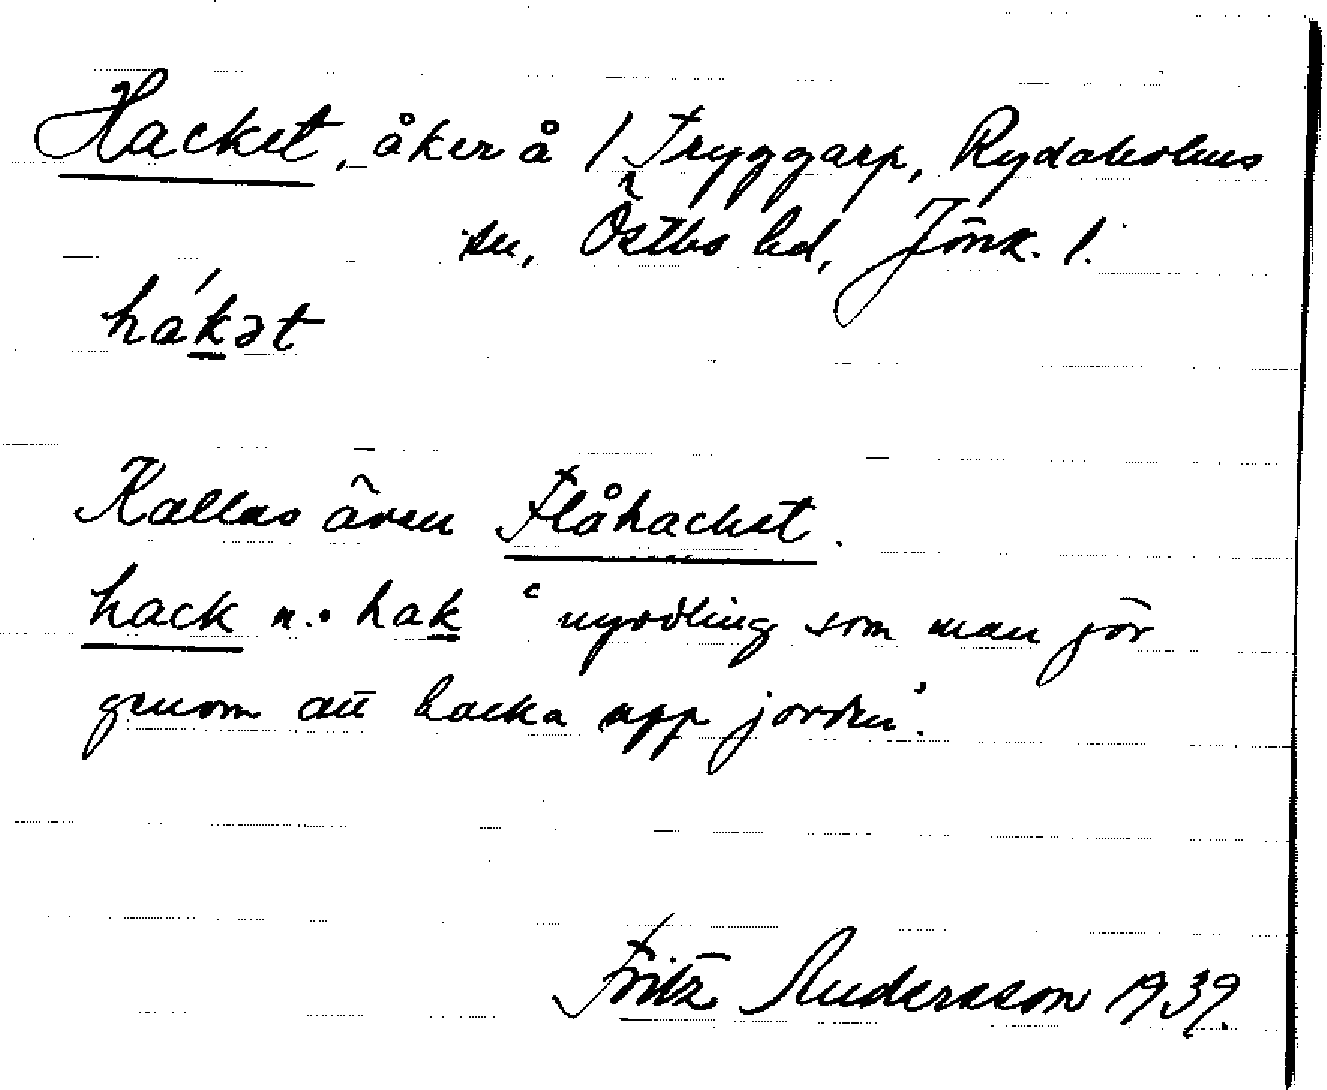 Hacket, åker å 1 Tryggarp, Rydaholms
sn, Östbo hd, Jönk. l.
hákət
Kallas även Flåhacket.
hack n.: hak "nyodling som man jör
genom att hacka upp jorden".
Fritz Andersson 1939.